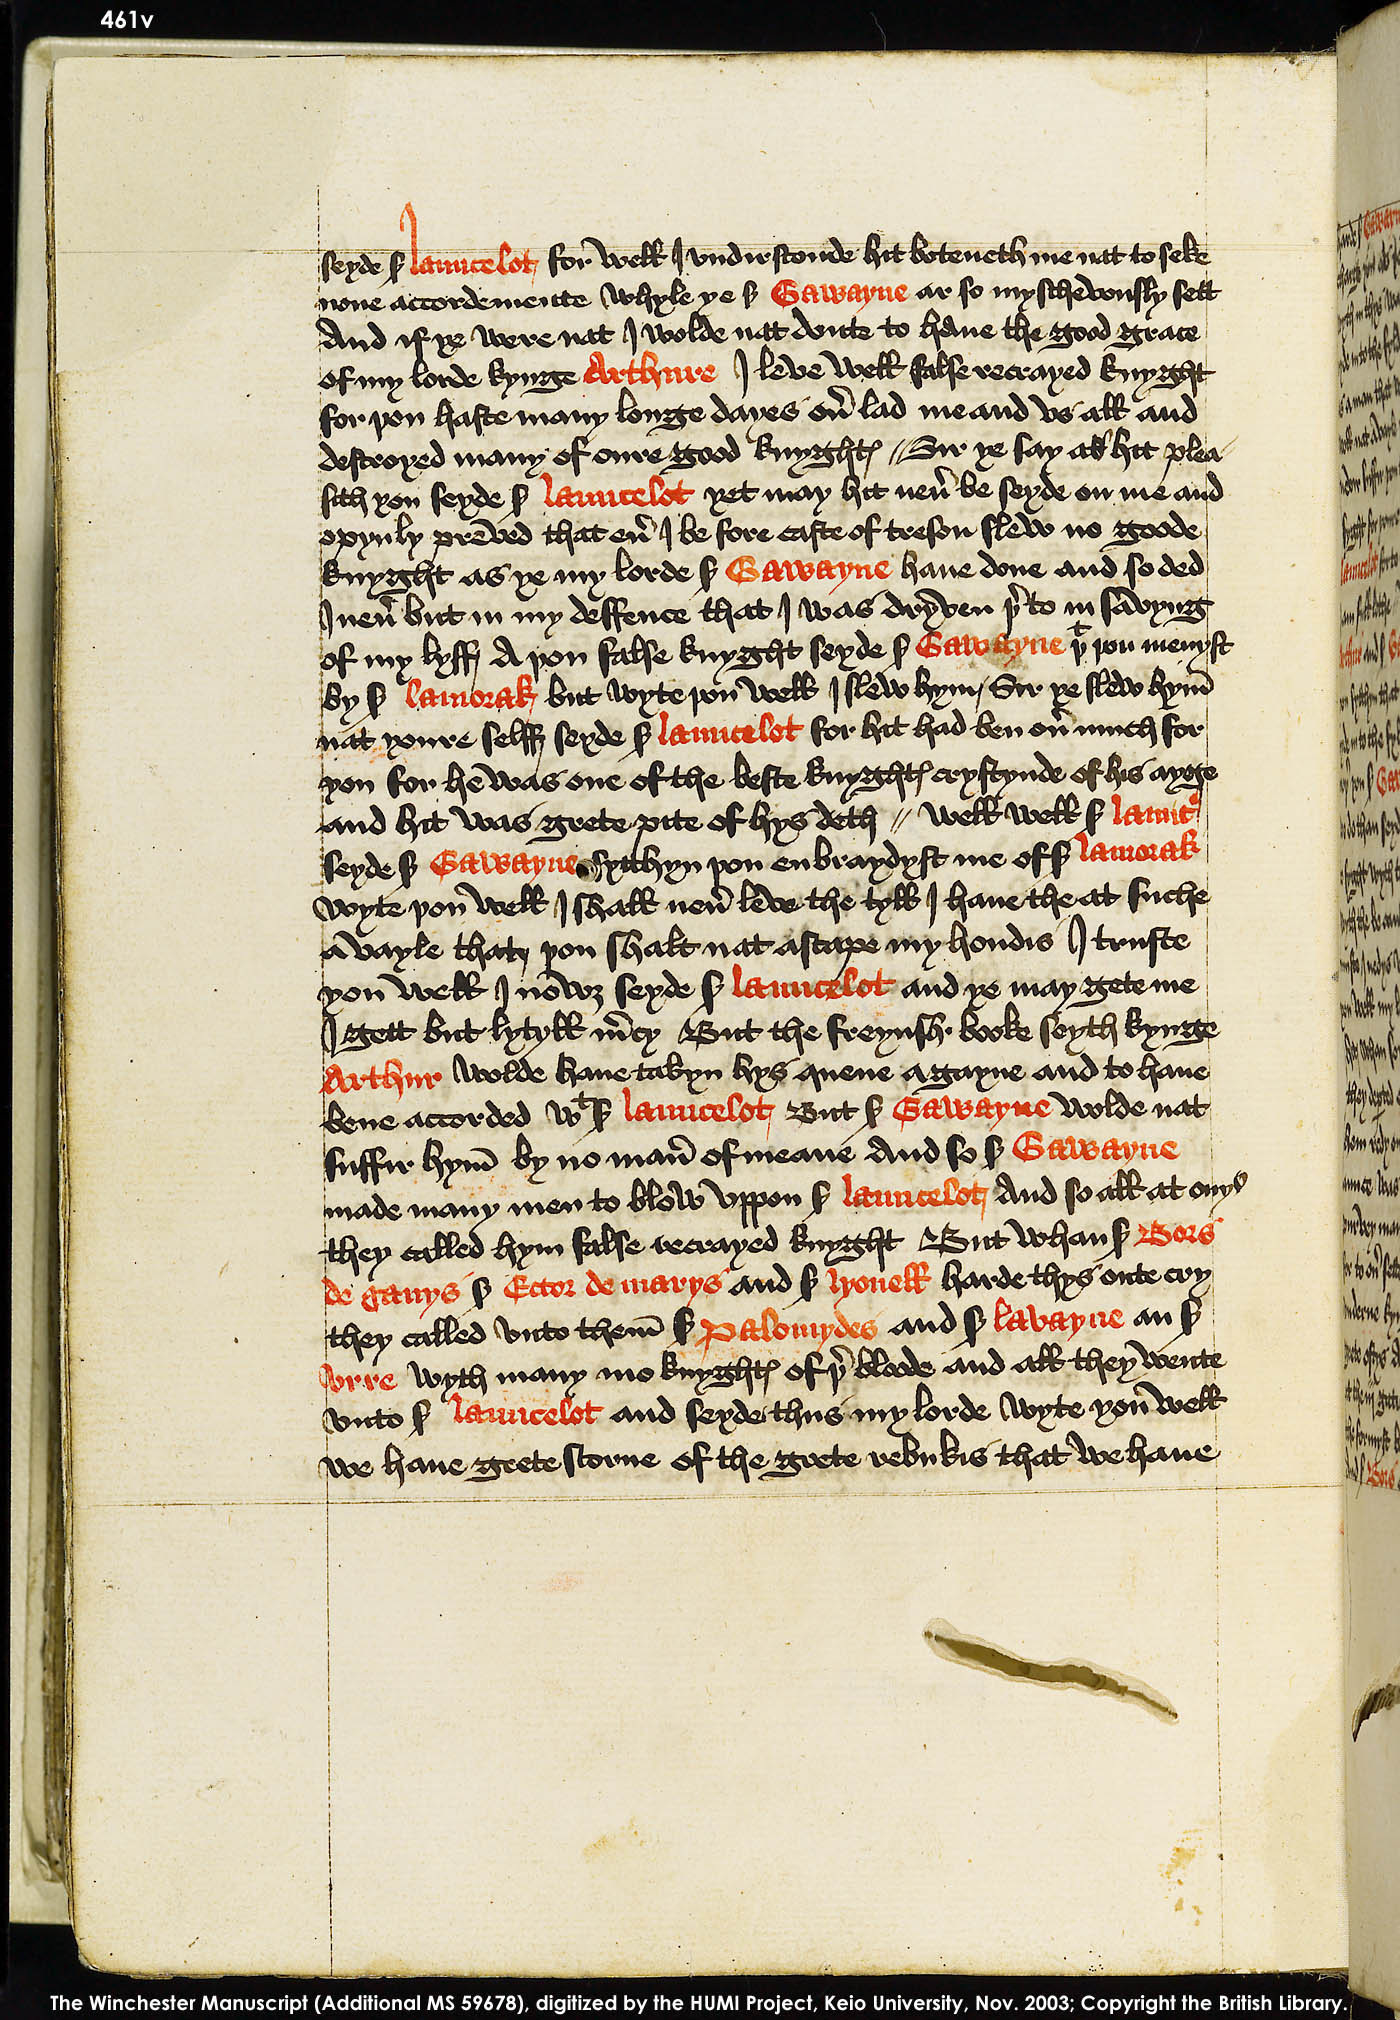 461v
seyde s̃ Launcelot for well I vndirstonde hit boteneth me nat to seke
none accordemente whyle ye s̃ Gawayne ar so myschevously sett
And if ye were nat I wolde nat doute to haue the good grace
of my lorde kynge Arthure I leve well false recrayed knyght
for þou haste many longe dayes ou̾ lad me and vs all and
destroyed many of oure good knyghtꝭ // Sir ye say as hit plea
sith you seyde s̃ Launcelot yet may hit neu̾ be seyde on me and
opynly preved that eu̾ I be fore caste of treson slew no goode
knyght as ye my lorde s̃ Gawayne haue done and so ded
I neu̾ but in my deffence that I was dryven þ̾ to in savyng
of my lyff A þou false knyght seyde s̃ Gawayne þᵗ þou menyst
by s̃ Lamorak but wyte þou well I slew hym / Sir ye slew hym̄
nat youre selff seyde s̃ Launcelot for hit had ben ou̾ much for
you for he was one of the beste knyghtꝭ crystynde of his ayge
and hit was grete pite of hys deth // well well s̃ Launc̾
seyde s̃ Gawayne sythyn þou enbraydyst me of s̃ Lamorak
wyte þou well I shall neu̾ leve the tyll I haue the at suche
avayle that þou shalt nat ascape my hondis I truste
you well I nowȝ seyde s̃ Launcelot and ye may gete me
I gett but lytyll m̾cy But the freynsh booke seyth kynge
Arthur wolde haue takyn hys quene agayne and to haue
bene accorded wᵗ s̃ Launcelot But s̃ Gawayne wolde nat
suffir hym̄ by no man̾ of meane And so s̃ Gawayne
made many men to blow vppon s̃ Launcelot And so all at onys
they called hym false recrayed knyght But whan s̃ Bors
de ganys s̃ Ector de marys and s̃ Lyonell harde thys oute cry
they called vnto them̄ s̃ Palomydes and s̃ Lavayne an s̃
Vrre wyth many mo knyghtꝭ of þ̾ bloode and all they wente
vnto s̃ Launcelot and seyde thus my lorde wyte you well
we haue grete scorne of the grete rebukis that we haue
The Winchester Manuscript (Additional MS 59678), digitized by the HUMI Project, Keio University, Nov. 2003; Copyright the British Library.